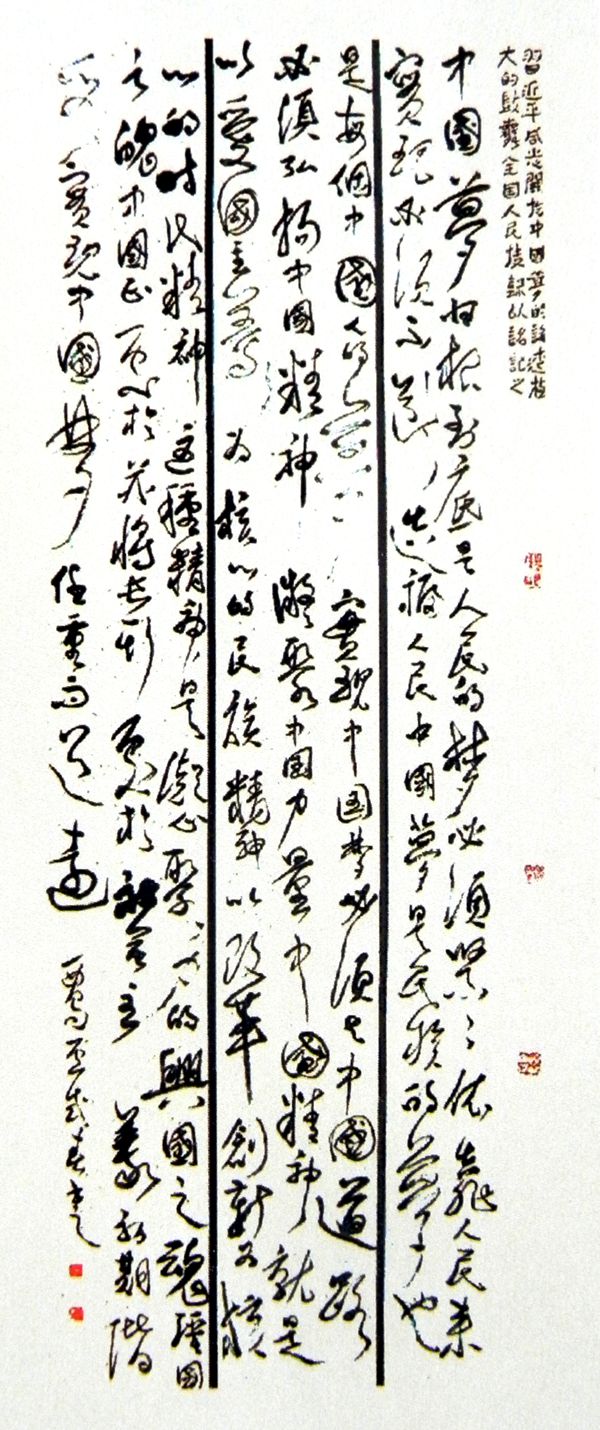 習近平同志關於中國夢的論述極
大的鼓舞全国人民
中國夢归根到底是人民的梦必須緊々依靠人民来
實現必須不斷造福人民中國夢是民族的夢也
是每個中國人的夢 實現中国梦必須走中國道路
必須弘揚中國精神 凝聚中国力量中國精神就是
以愛國主義为核心的民族精神以改革創新为核
心的时代精神這種精神是凝心聚力的興國之魂强国
之魄中國正處於并將長期處於社會主義初期階
段實現中國梦任重而道遠